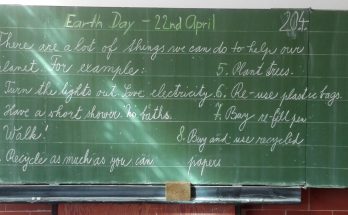 Earth Day - 22nd April
204.
There are a lot of things we can do to help our
planet. For example:
Turn the lights out. Save electricity.
Have a short shower. No baths.
Walk!
Recycle as much as you can
5. Plant trees.
6. Re-use plastic bags.
7. Buy re-fill pen
8. Buy and use recycled
papers